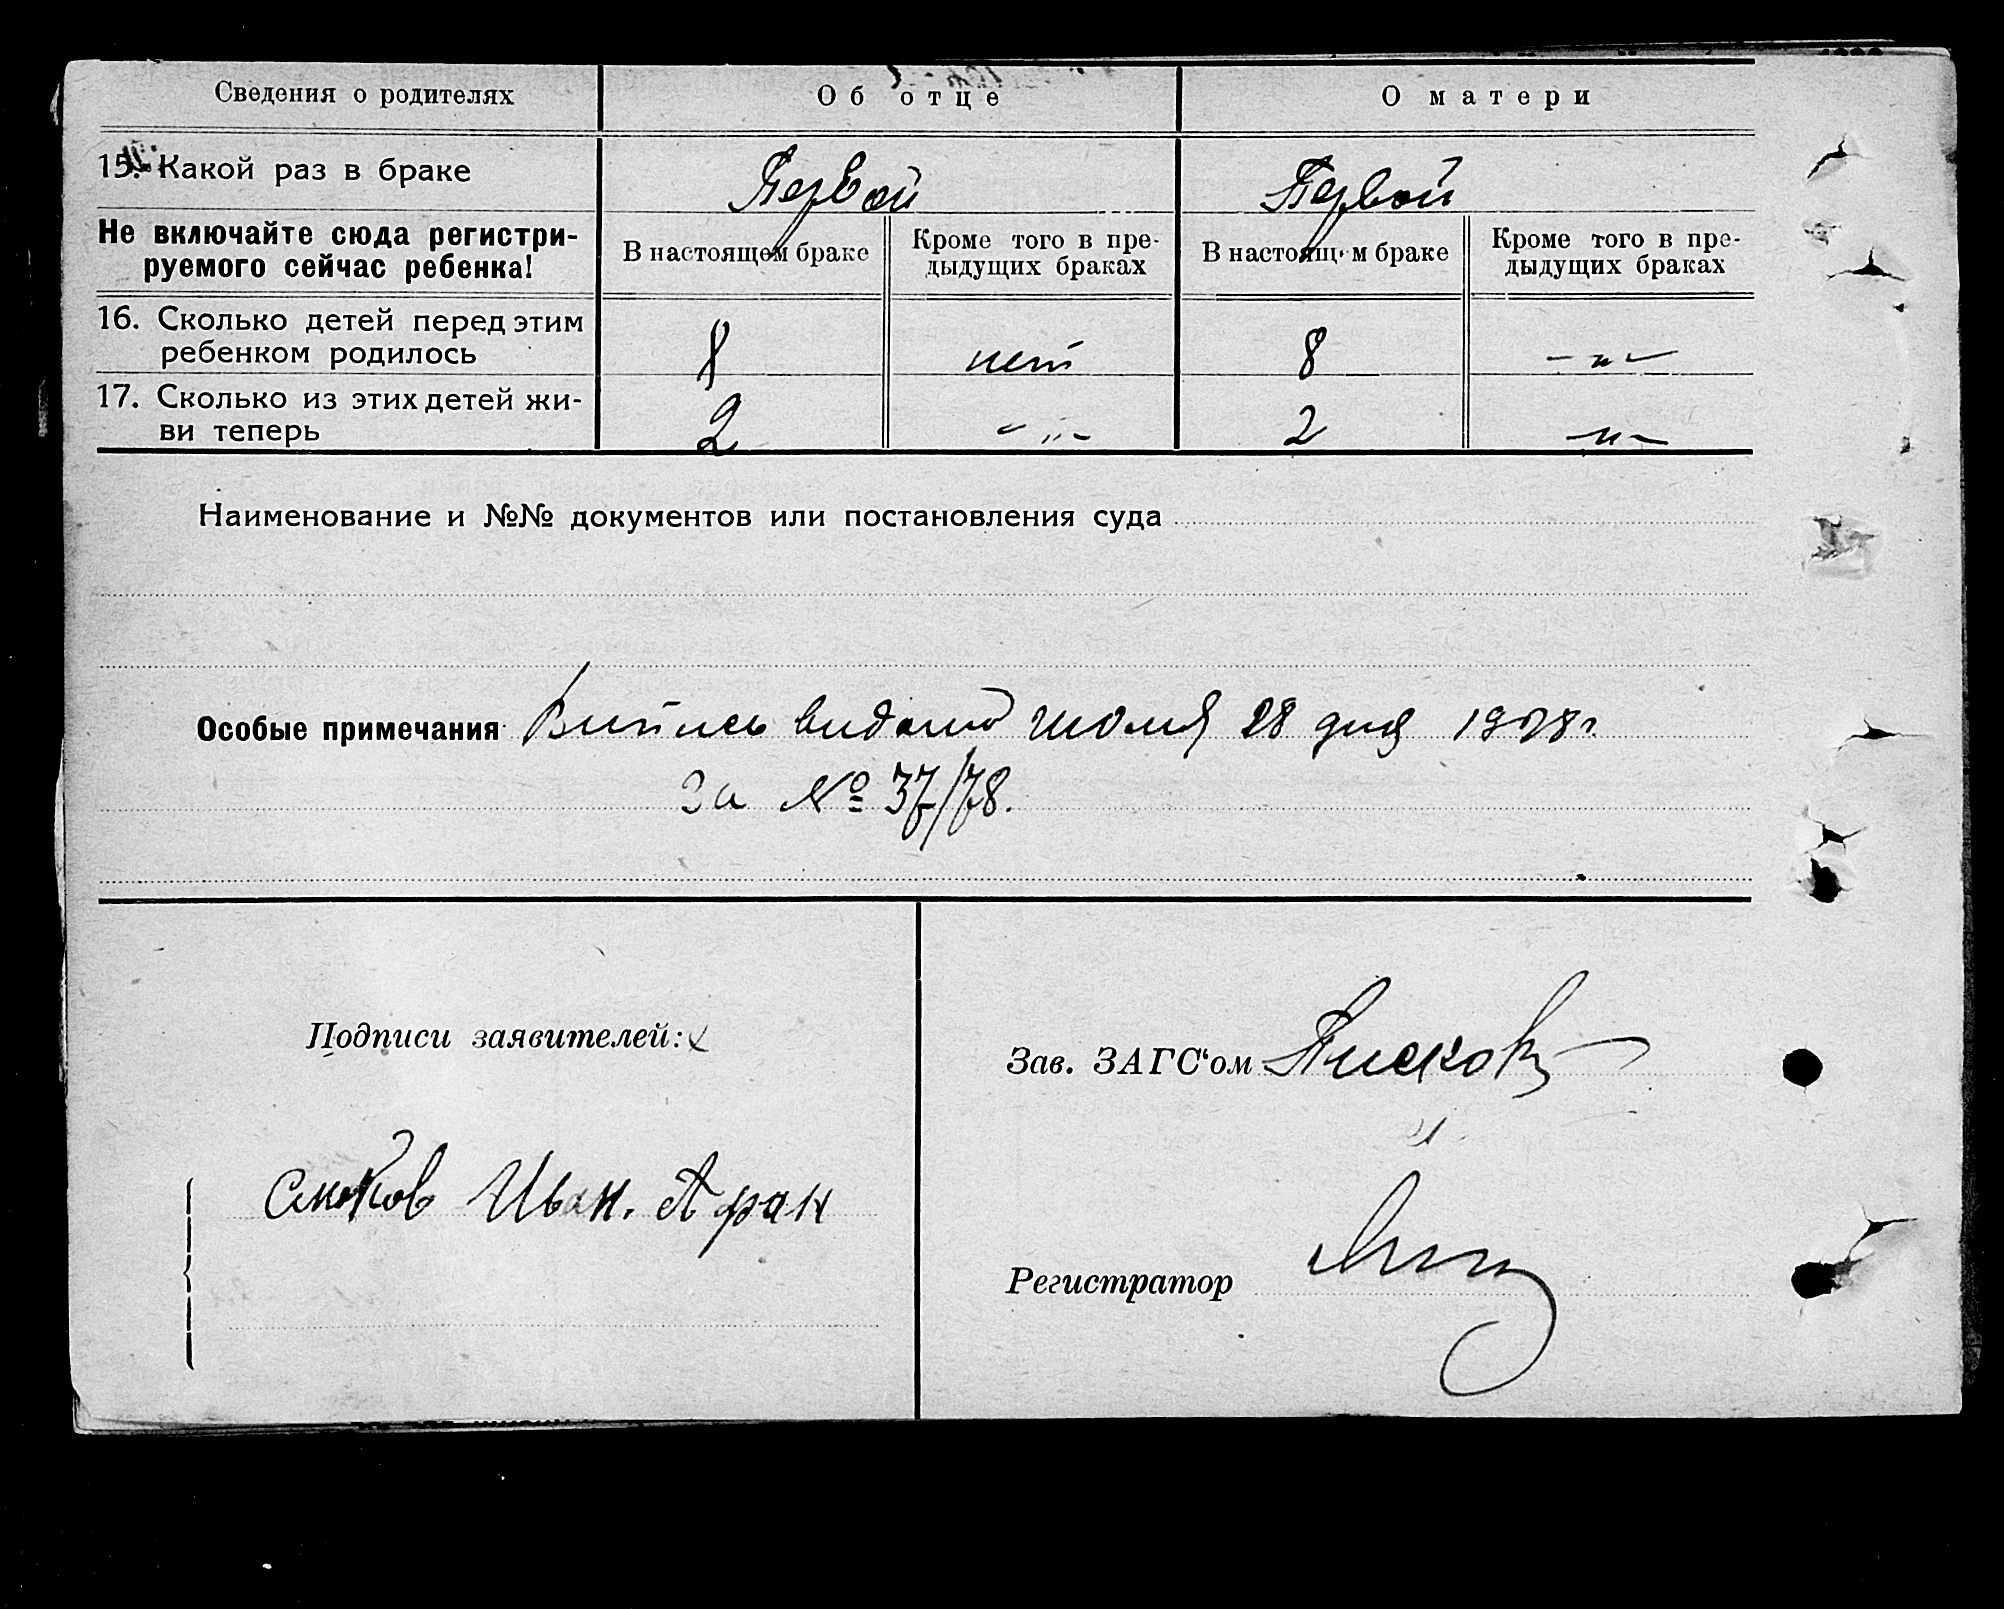 Сведения о родителях
Об отце
О матери
15. Какой раз в браке
Первой
Первой
Не включайте сюда регистри-
руемого сейчас ребенка!
В настоящем браке
Кроме того в пре-
дыдущих браках
В настоящем браке
Кроме того в пре-
дыдущих браках
16. Сколько детей перед этим
ребенком родилось
8
нет
8
-"-
17. Сколько из этих детей жи-
ви теперь
2
-"-
2
-"-
Наименование и №№ документов или постановления суда
Особые примечания
28 дня
за № 37/78.
Подписи заявителей:
Иван. Афан
Зав. ЗАГС'ом Писков
Регистратор